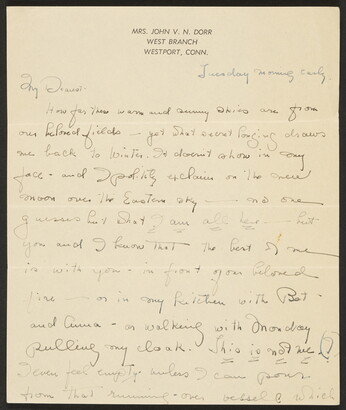 MRS. JOHN V. N. DORR
WEST BRANCH
WESTPORT, CONN.
Tuesday morning early.
My Dearest.
How far these warm and sunny skies are from
our beloved fields — yet that secret longing draws
me back to Winter. It doesn't show in my
face - and I politely exclaim on the new
moon over the Eastern sky — no one
guesses but that I am all here — but
you and I know that the best of me
is with you - in front of our beloved
fire — or in my kitchen with Bet -
and Anna - or walking with Monday
pulling my cloak. This is not me (!)
I even feel empty unless I can pour
from that running-over vessel of which